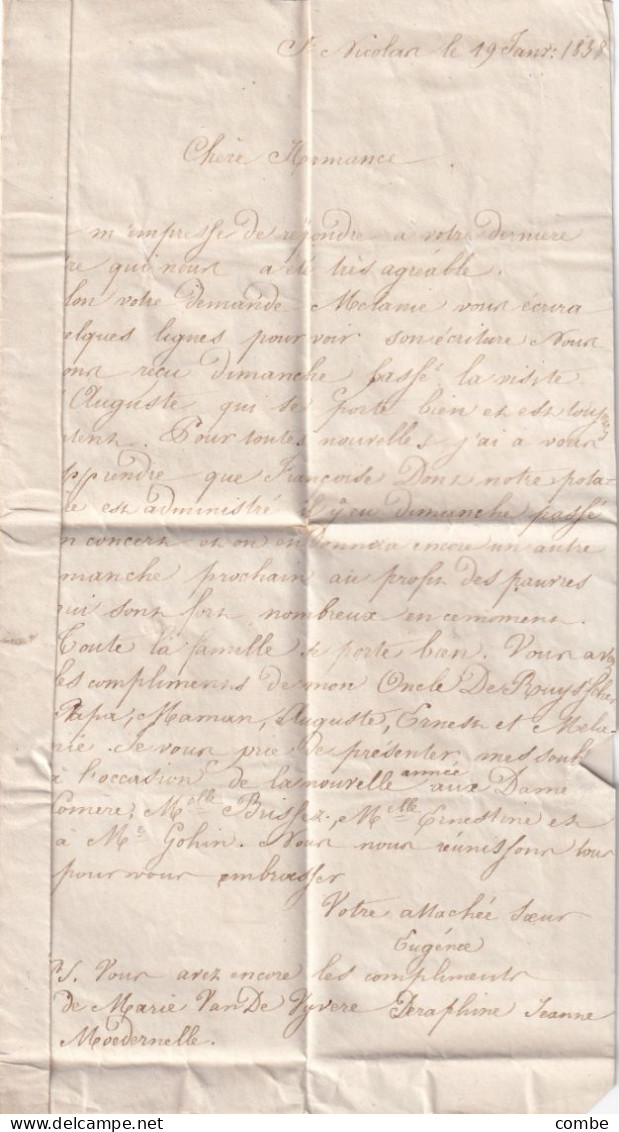 St Nicolas le 19 Janv: 1838
Chère Hermance
m'empresse de répondre a votre derniere
tre qui nous a été très agréable.
lon votre demande Melanie vous écrira
elques lignes pour voir son écriture Nous
ons reçu dimanche passé la visite
Auguste qui se porte bien et est touj
tent. Pour toutes nouvelles j'ai a vous
pprendre que Françoise Dont notre pota
re est administré il y eu dimanche passé
n concert et on en donnera encore un autre
manche prochain au profit des pauvres
qui sont fort nombreux en cemoment.
Toute la famille se porte bien. Vous avez
les compliments de mon Oncle De Ruyss
Papa, Maman, Auguste, Ernest et Mela
nie. Je vous prie de présenter mes souh
à l'occasion de la nouvelle année aux Dame
Comere, Melle Brissez, Melle Ernestine et
à Mr Gohin. Nous nous réunissons tous
pour vous embrasser
Votre attachée sœur
Eugénie
PS. Vous avez encore les compliments
de Marie Van De Vyvere Seraphine Jeanne
Moedernelle.
combe
delcampe.net